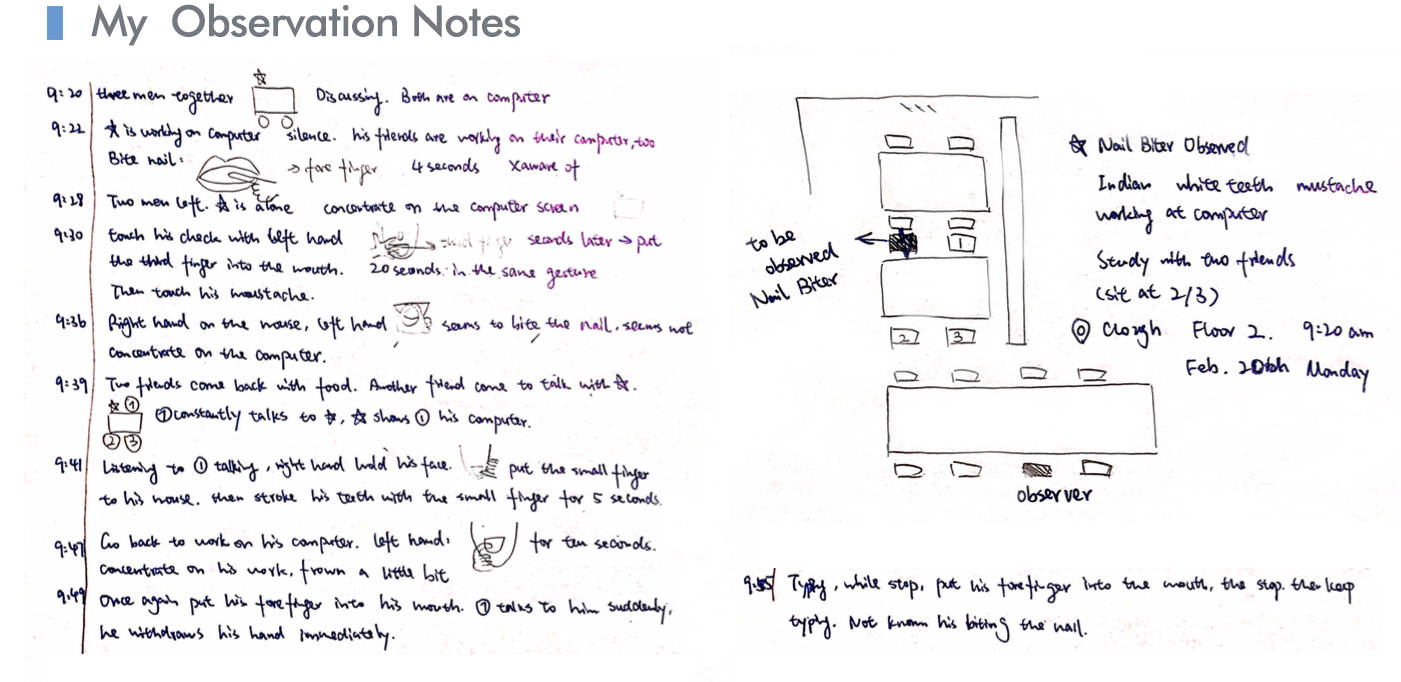 My Observation Notes
9:20 three men together Discussing. Both are on computer
9:22 ☆ is workly on computer silence. his friends are workly on their computer, too
Bite nail: → fore finger 4 seconds Xaware of
9:28 Two men left. ☆ is alone concentrate on the computer screen
9:30 touch his check with left hand → third finger seconds later → put
the third finger into the mouth. 20 seconds. in the same gesture
Then touch his moustache.
9:36 Right hand on the mouse, left hand seems to bite the nail, seems not
concentrate on the computer.
9:39 Two friends come back with food. Another friend come to talk with ☆.
☆ ① ①constantly talks to ☆, ☆ shows ① his computer.
② ③
9:41 Listening to ① talking, right hand hold his face. put the small finger
to his mouse. then stroke his teeth with the small finger for 5 seconds.
9:47 Go back to work on his computer. left hand: for ten seconds.
concentrate on his work, frown a little bit
9:49 Once again put his forefinger into his mouth. ① talks to him suddenly,
he withdraws his hand immediately.
to be
observed
Nail Biter
1
2 3
observer
☆ Nail Biter Observed
Indian white teeth mustache
working at computer
Study with two friends
(sit at 2/3)
Clough Floor 2. 9:20 am
Feb. 20th Monday
9:55 Typly, while stop, put his forefinger into the mouth, the stop. then keep
typly. Not known his biting the nail.